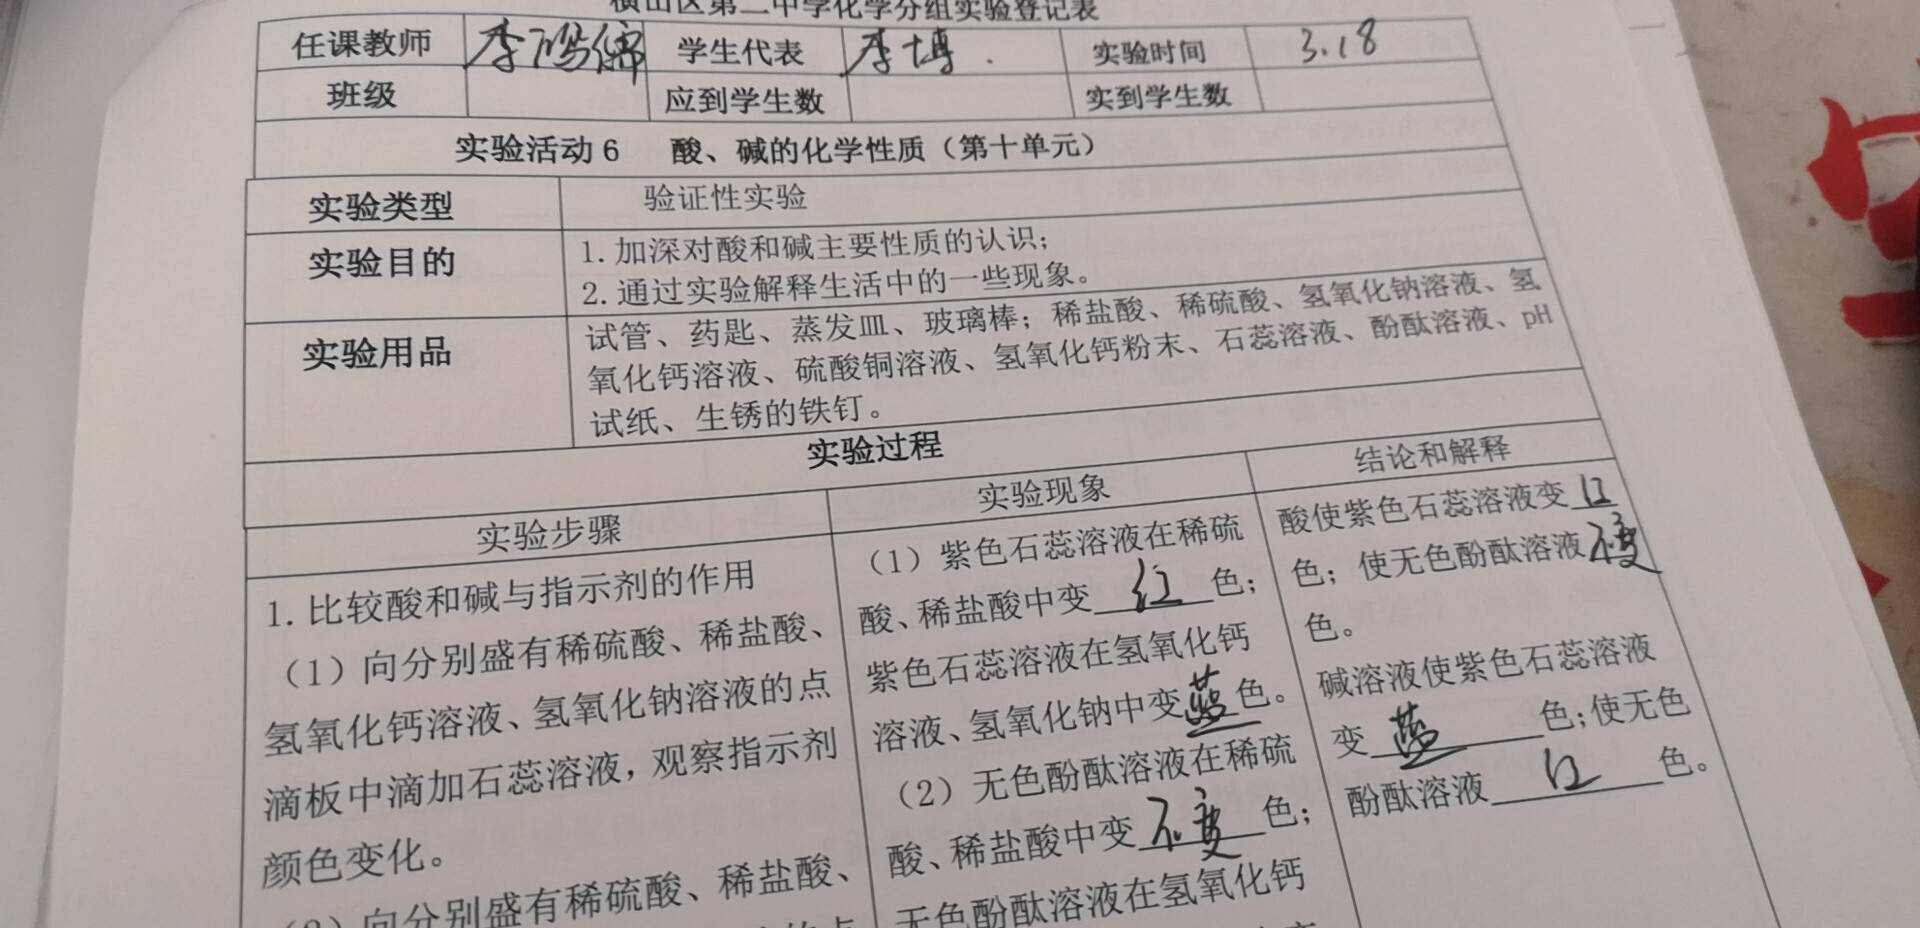 横山区第二中学化学分组实验登记表
任课教师 学生代表 李博. 实验时间 3.18
班级 应到学生数 实到学生数
实验活动6 酸、碱的化学性质（第十单元）
实验类型 验证性实验
实验目的 1.加深对酸和碱主要性质的认识；
2.通过实验解释生活中的一些现象。
实验用品 试管、药匙、蒸发皿、玻璃棒；稀盐酸、稀硫酸、氢氧化钠溶液、氢
氧化钙溶液、硫酸铜溶液、氢氧化钙粉末、石蕊溶液、酚酞溶液、pH
试纸、生锈的铁钉。
实验过程
实验步骤 实验现象 结论和解释
1.比较酸和碱与指示剂的作用
（1）向分别盛有稀硫酸、稀盐酸、
氢氧化钙溶液、氢氧化钠溶液的点
滴板中滴加石蕊溶液，观察指示剂
颜色变化。
（2）向分别盛有稀硫酸、稀盐酸、
的点
（1）紫色石蕊溶液在稀硫
酸、稀盐酸中变红色；
紫色石蕊溶液在氢氧化钙
溶液、氢氧化钠中变蓝色。
（2）无色酚酞溶液在稀硫
酸、稀盐酸中变不变色；
无色酚酞溶液在氢氧化钙
酸使紫色石蕊溶液变红
色；使无色酚酞溶液不变
色。
碱溶液使紫色石蕊溶液
变蓝色；使无色
酚酞溶液红色。